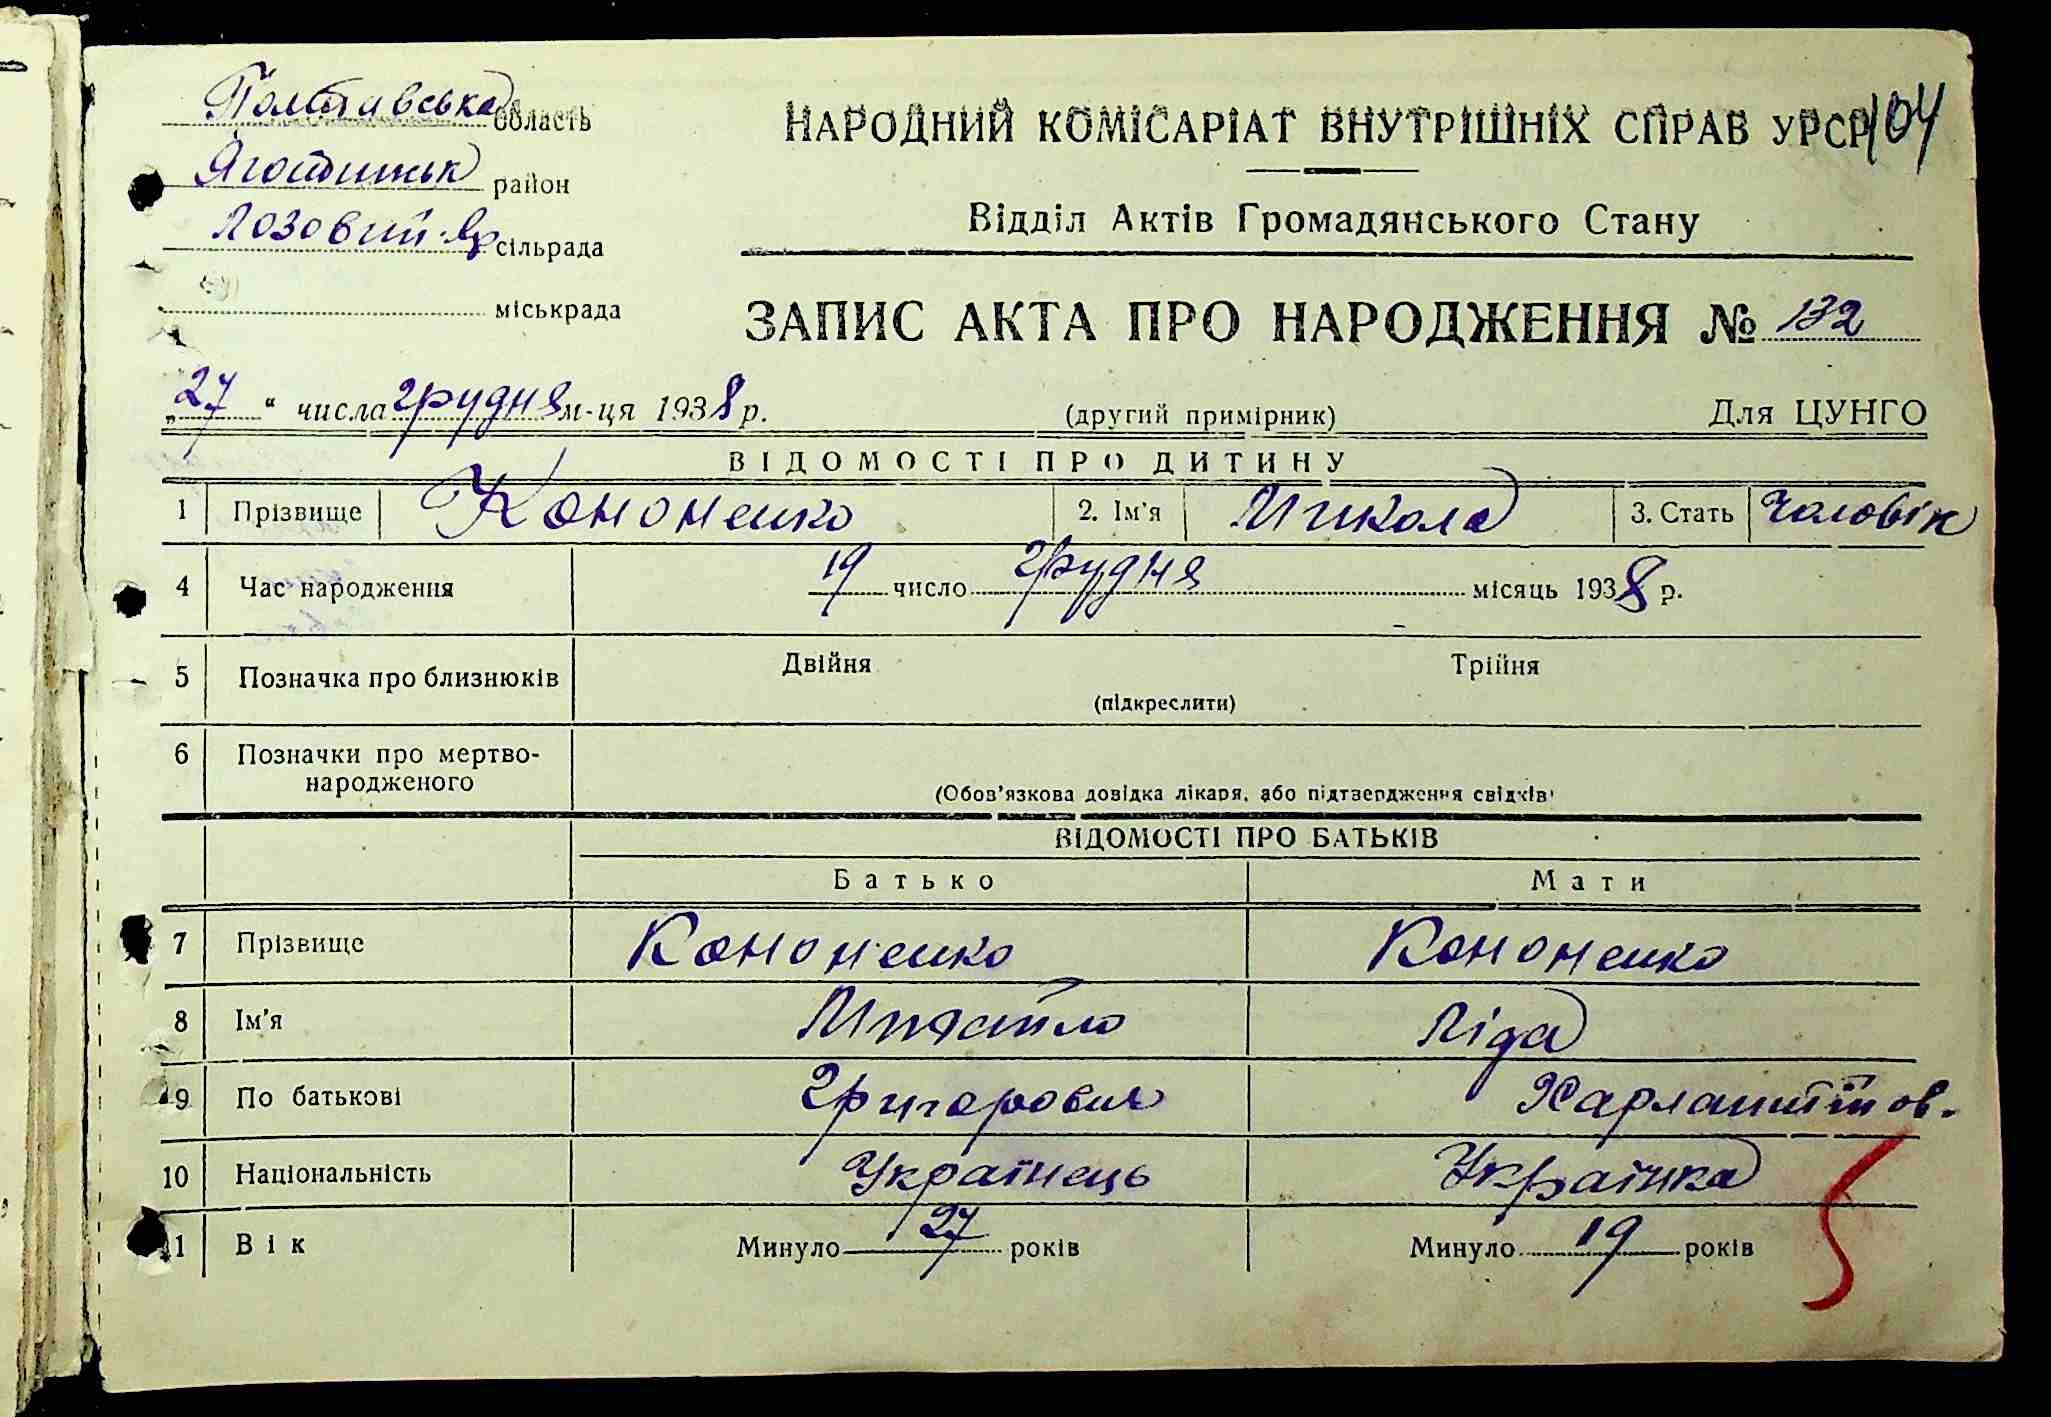 Полтавська область
Яготинськ район
Лозовий-Яр сільрада
міськрада
НАРОДНИЙ КОМІСАРІАТ ВНУТРІШНІХ СПРАВ УРСР 104
Відділ Актів Громадянського Стану
ЗАПИС АКТА ПРО НАРОДЖЕННЯ № 132
„27“ числа грудня м-ця 1938 р. (другий примірник) Для ЦУНГО
ВІДОМОСТІ ПРО ДИТИНУ
1 Прізвище Кононенко 2. Ім'я Микола 3. Стать Чоловік
4 Час народження 19 число грудня місяць 1938 р.
5 Позначка про близнюків Двійня Трійня
(підкреслити)
6 Позначки про мертво-
народженого
(Обов'язкова довідка лікаря, або підтвердження свідків)
ВІДОМОСТІ ПРО БАТЬКІВ
Батько Мати
7 Прізвище Кононенко Кононенко
8 Ім'я Михайло Ліда
9 По батькові Григорович Харлампіїов.
10 Національність Українець Українка
11 Вік Минуло 27 років Минуло 19 років